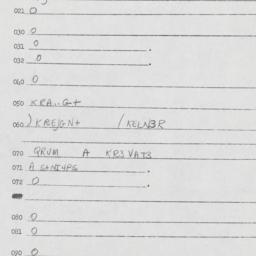 021 0
030 0
031 0
032 0
040 0
050 KRA..G+
060 )KREJGN+ /KELN3R
070 GRUM A KR3VAT3
071 A
072 0
080 0
081 0
090 0